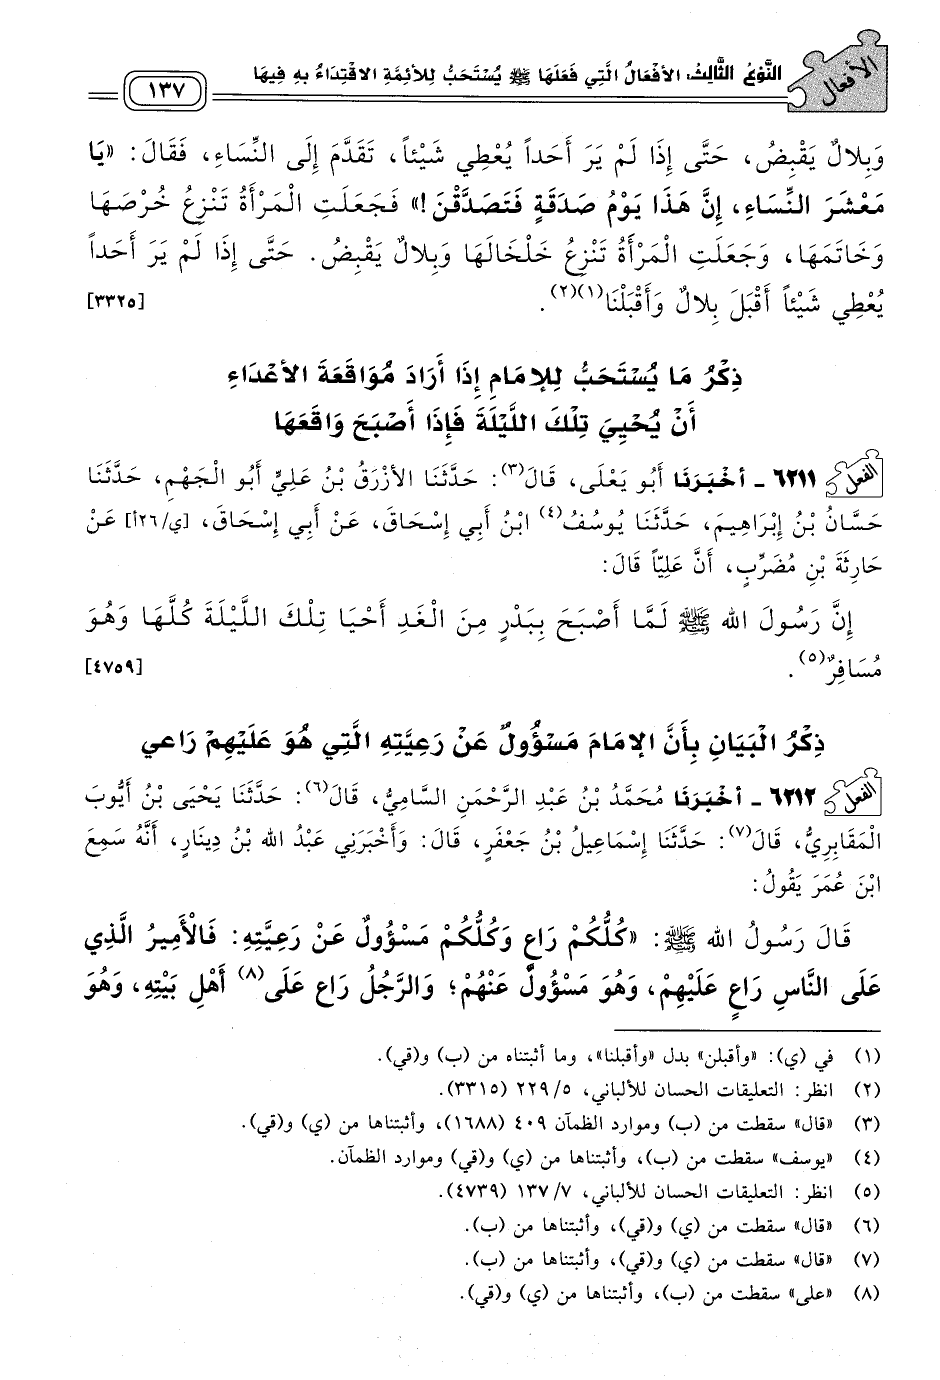 الأفعال
النَّوْعُ الثَّالِثُ: الأَفْعَالُ الَّتِي فَعَلَهَا ﷺ يُسْتَحَبُّ لِلأَئِمَّةِ الاقْتِدَاءُ بِهِ فِيهَا
١٣٧
وَبِلالٌ يَقْبِضُ، حَتَّى إِذَا لَمْ يَرَ أَحَداً يُعْطِي شَيْئاً، تَقَدَّمَ إِلَى النِّسَاءِ، فَقَالَ: «يَا
مَعْشَرَ النِّسَاءِ، إِنَّ هَذَا يَوْمُ صَدَقَةٍ فَتَصَدَّقْنَ!» فَجَعَلَتِ الْمَرْأَةُ تَنْزِعُ خُرْصَهَا
وَخَاتَمَهَا، وَجَعَلَتِ الْمَرْأَةُ تَنْزِعُ خَلْخَالَهَا وَبِلالٌ يَقْبِضُ. حَتَّى إِذَا لَمْ يَرَ أَحَداً
يُعْطِي شَيْئاً أَقْبَلَ بِلالٌ وَأَقْبَلْنَا(١)(٢). [٣٣٢٥]
ذِكْرُ مَا يُسْتَحَبُّ لِلإمَامِ إِذَا أَرَادَ مُوَاقَعَةَ الأعْدَاءِ
أَنْ يُحْيِيَ تِلْكَ اللَّيْلَةَ فَإِذَا أَصْبَحَ وَاقَعَهَا
الفعل ٦٢١١ - أخْبَرنَا أَبُو يَعْلَى، قَالَ(٣): حَدَّثَنَا الأَزْرَقُ بْنُ عَلِيٍّ أَبُو الْجَهْمِ، حَدَّثَنَا
حَسَّانُ بْنُ إِبْرَاهِيمَ، حَدَّثَنَا يُوسُفُ(٤) ابْنُ أَبِي إِسْحَاقَ، عَنْ أَبِي إِسْحَاقَ، [ي/٢٦أ] عَنْ
حَارِثَةَ بْنِ مُضَرِّبٍ، أَنَّ عَلِيّاً قَالَ:
إِنَّ رَسُولَ الله ﷺ لَمَّا أَصْبَحَ بِبَدْرٍ مِنَ الْغَدِ أَحْيَا تِلْكَ اللَّيْلَةَ كُلَّهَا وَهُوَ
مُسَافِرٌ(٥). [٤٧٥٩]
ذِكْرُ الْبَيَانِ بِأَنَّ الإمَامَ مَسْؤُولٌ عَنْ رَعِيَّتِهِ الَّتِي هُوَ عَلَيْهِمْ رَاعِي
الفعل ٦٢١٢ - أخْبَرنَا مُحَمَّدُ بْنُ عَبْدِ الرَّحْمَنِ السَّامِيُّ، قَالَ(٦): حَدَّثَنَا يَحْيَى بْنُ أَيُّوبَ
الْمَقَابِرِيُّ، قَالَ(٧): حَدَّثَنَا إِسْمَاعِيلُ بْنُ جَعْفَرٍ، قَالَ: وَأَخْبَرَنِي عَبْدُ الله بْنُ دِينَارٍ، أَنَّهُ سَمِعَ
ابْنَ عُمَرَ يَقُولُ:
قَالَ رَسُولُ الله ﷺ: «كُلُّكُمْ رَاعٍ وَكُلُّكُمْ مَسْؤُولٌ عَنْ رَعِيَّتِهِ: فَالْأَمِيرُ الَّذِي
عَلَى النَّاسِ رَاعٍ عَلَيْهِمْ، وَهُوَ مَسْؤُولٌ عَنْهُمْ؛ وَالرَّجُلُ رَاعٍ عَلَى(٨) أَهْلِ بَيْتِهِ، وَهُوَ
(١) في (ي): «وأقبلن» بدل «وأقبلنا»، وما أثبتناه من (ب) و(قي).
(٢) انظر: التعليقات الحسان للألباني، ٥/ ٢٢٩ (٣٣١٥).
(٣) «قال» سقطت من (ب) وموارد الظمآن ٤٠٩ (١٦٨٨)، وأثبتناها من (ي) و(قي).
(٤) «يوسف» سقطت من (ب)، وأثبتناها من (ي) و(قي) وموارد الظمآن.
(٥) انظر: التعليقات الحسان للألباني، ٧/ ١٣٧ (٤٧٣٩).
(٦) «قال» سقطت من (ي) و(قي)، وأثبتناها من (ب).
(٧) «قال» سقطت من (ي) و(قي)، وأثبتناها من (ب).
(٨) «على» سقطت من (ب)، وأثبتناها من (ي) و(قي).